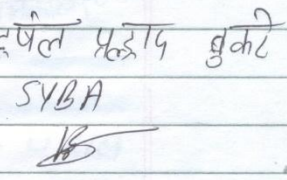 हर्षल प्रल्हाद बुकटे
SYBA